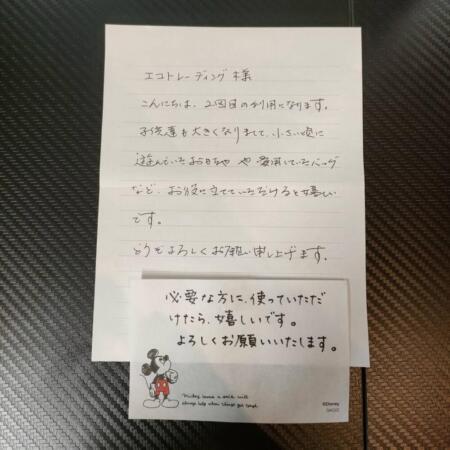 エコトレーディング様
こんにちは、2回目の利用になります。
子供達も大きくなりまして、小さい頃に
遊んでいたおもちゃ や 愛用していたバッグ
など、お役に立てていただけると嬉しい
です。
どうぞよろしくお願い申し上げます。
必要な方に、使っていただだ
けたら、嬉しいです。
よろしくお願いいたします。
©Disney